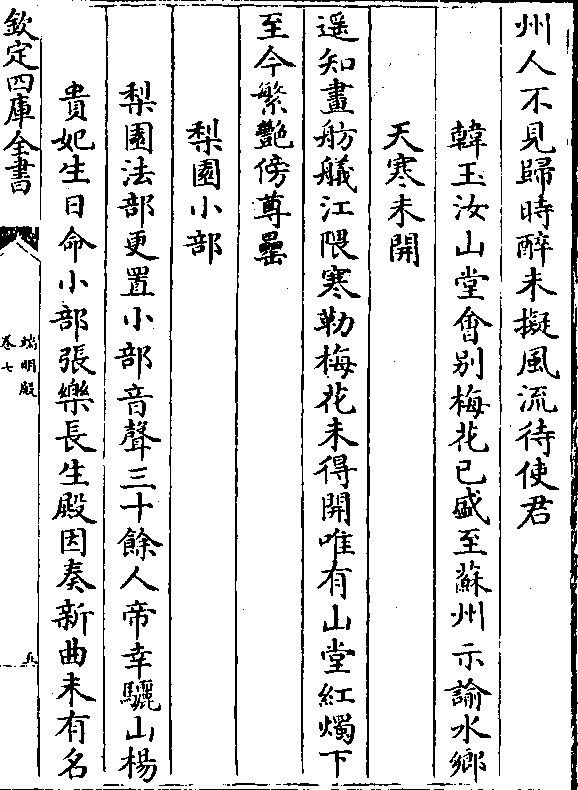 州人不見歸時醉未擬風流待使君
韓玉汝山堂會别梅花已盛至蘇州示諭水鄉
天寒未開
遥知畫舫艤江隈寒勒梅花未得開唯有山堂紅燭下
至今繁艷傍尊罍
梨園小部
梨園法部更置小部音聲三十餘人帝幸驪山楊
貴妃生日命小部張樂長生殿因奏新曲未有名
欽定四庫全書
端明殿
卷七